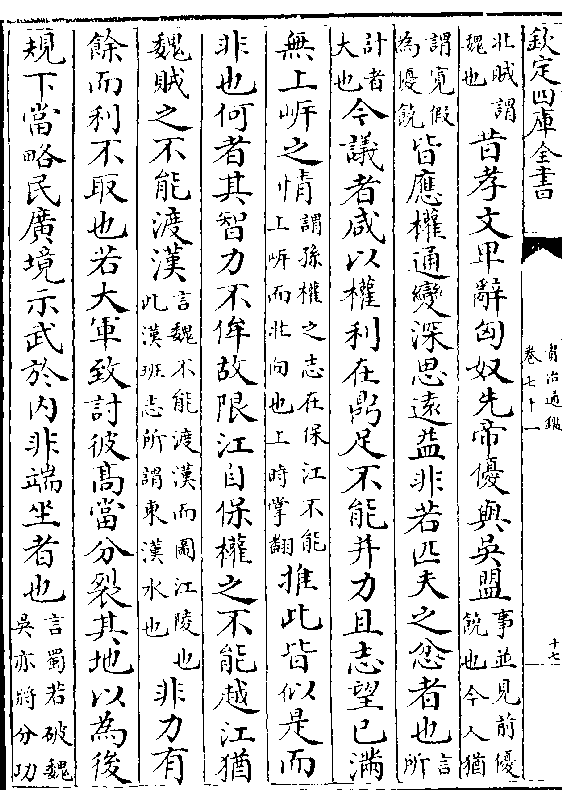 欽定四庫全書
資治通鑑
卷七十一
十七
北賊謂
魏也
昔孝文卑辭匈奴先帝優與吳盟
事並見前優
饒也今人猶
謂寛假
為優饒
皆應權通變深思遠益非若匹夫之忿者也
言
所
計者
大也
今議者咸以權利在鼎足不能并力且志望已滿
無上岍之情
謂孫權之志在保江不能
上岍而北向也上時掌翻
推此皆似是而
非也何者其智力不侔故限江自保權之不能越江猶
魏賊之不能渡漢
言魏不能渡漢而圖江陵也
此漢班志所謂東漢水也
非力有
餘而利不取也若大軍致討彼髙當分裂其地以為後
規下當略民廣境示武於内非端坐者也
言蜀若破魏
吳亦將分功